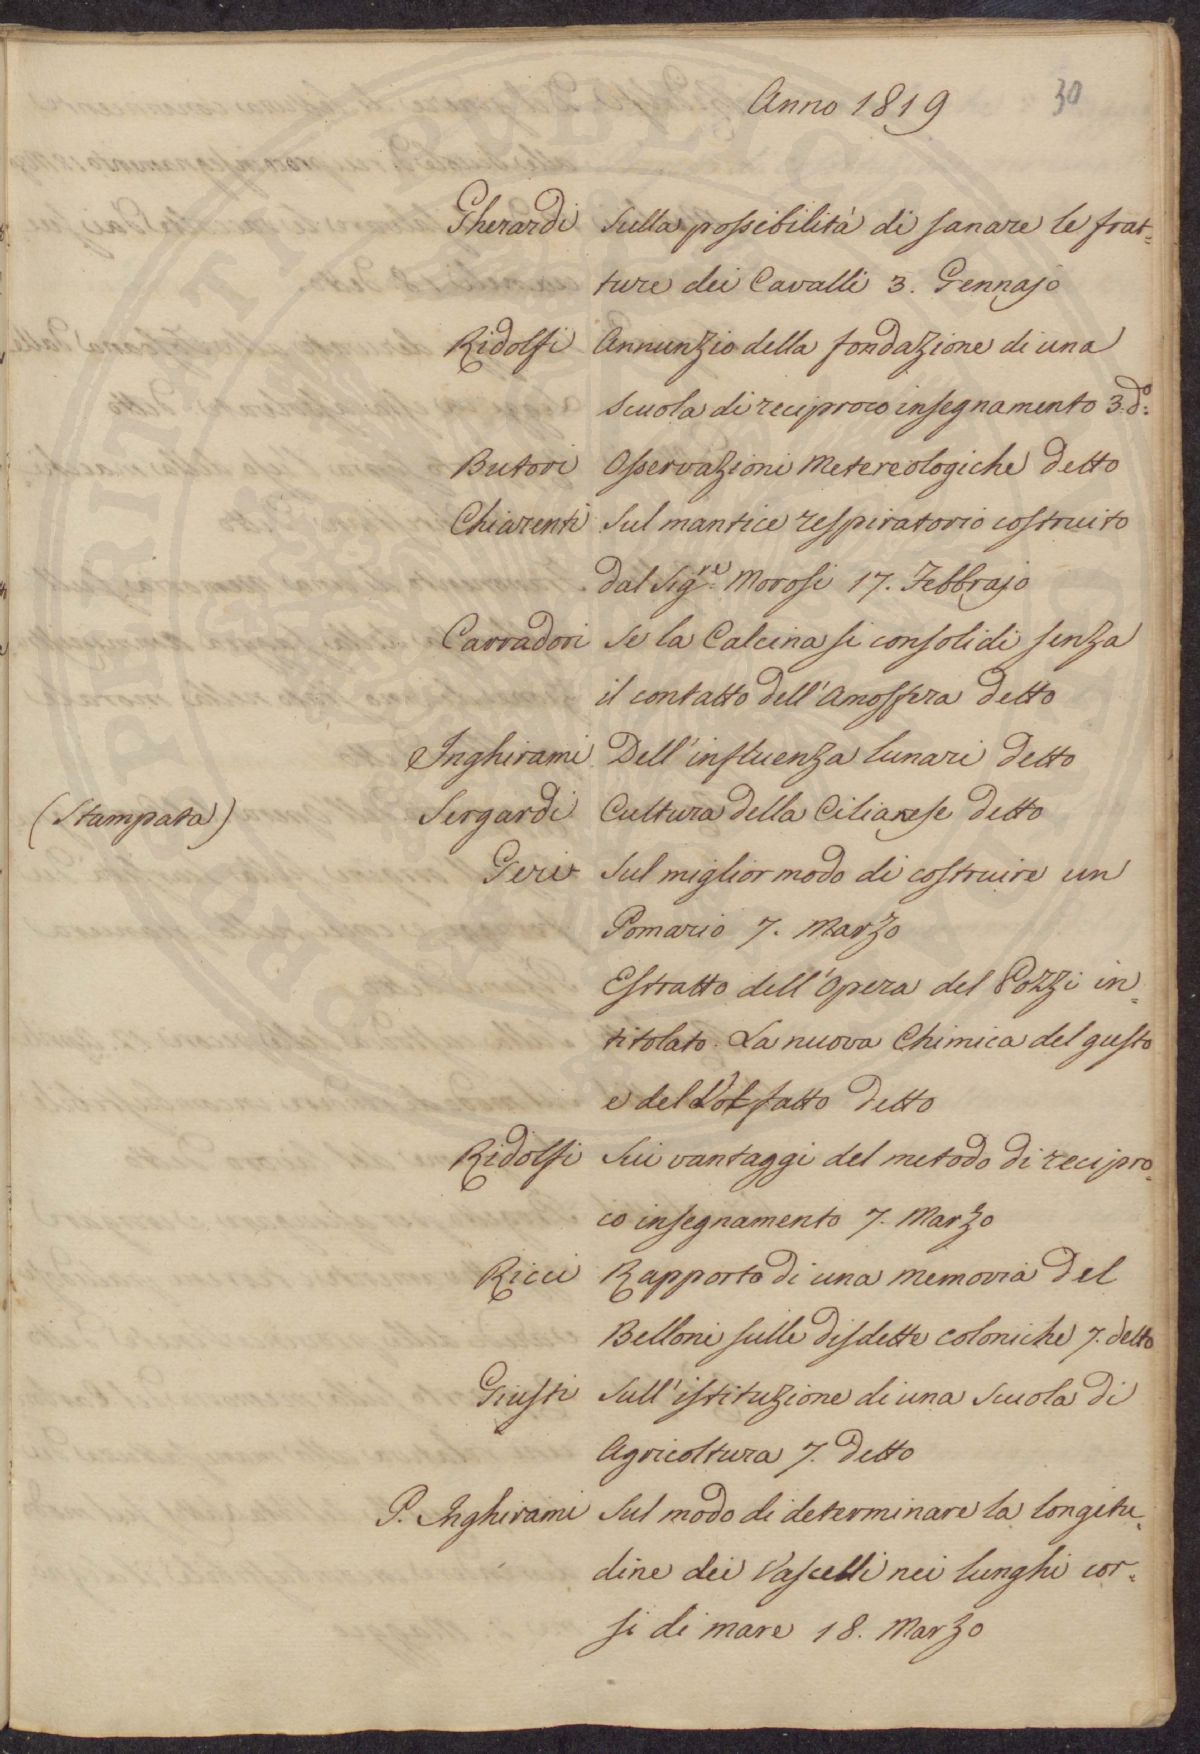 30
Anno 1819
Gherardi Sulla possibilità di sanare le frat=
ture dei Cavalli 3. Gennajo
Ridolfi Annunzio della fondazione di una
Scuola di reciproco insegnamento 3. do:
Butori Osservazioni Metereologiche detto
Chiarenti Sul mantice respiratorio costruito
dal Sigre. Morosi 17. Febbrajo
Carradori Se la Calcina si consolidi senza
il contatto dell'Amosfera detto
Inghirami Dell'influenza lunari detto
(Stampata) Sergardi Cultura della Cilianese detto
Geri Sul miglior modo di costruire un
Pomario 7. Marzo
Estratto dell'Opera del Pozzi in=
titolato. La nuova Chimica del gusto
e dell'olfatto detto
Ridolfi Sui vantaggi del metodo di recipro=
co insegnamento 7. Marzo
Ricci Rapporto di una memoria del
Belloni sulle disdette coloniche 7. detto
Giusti Sull'istituzione di una Scuola di
Agricoltura 7. detto
P. Inghirami Sul modo di determinare la longitu=
dine dei Vascelli nei lunghi cor=
si di mare 18. Marzo